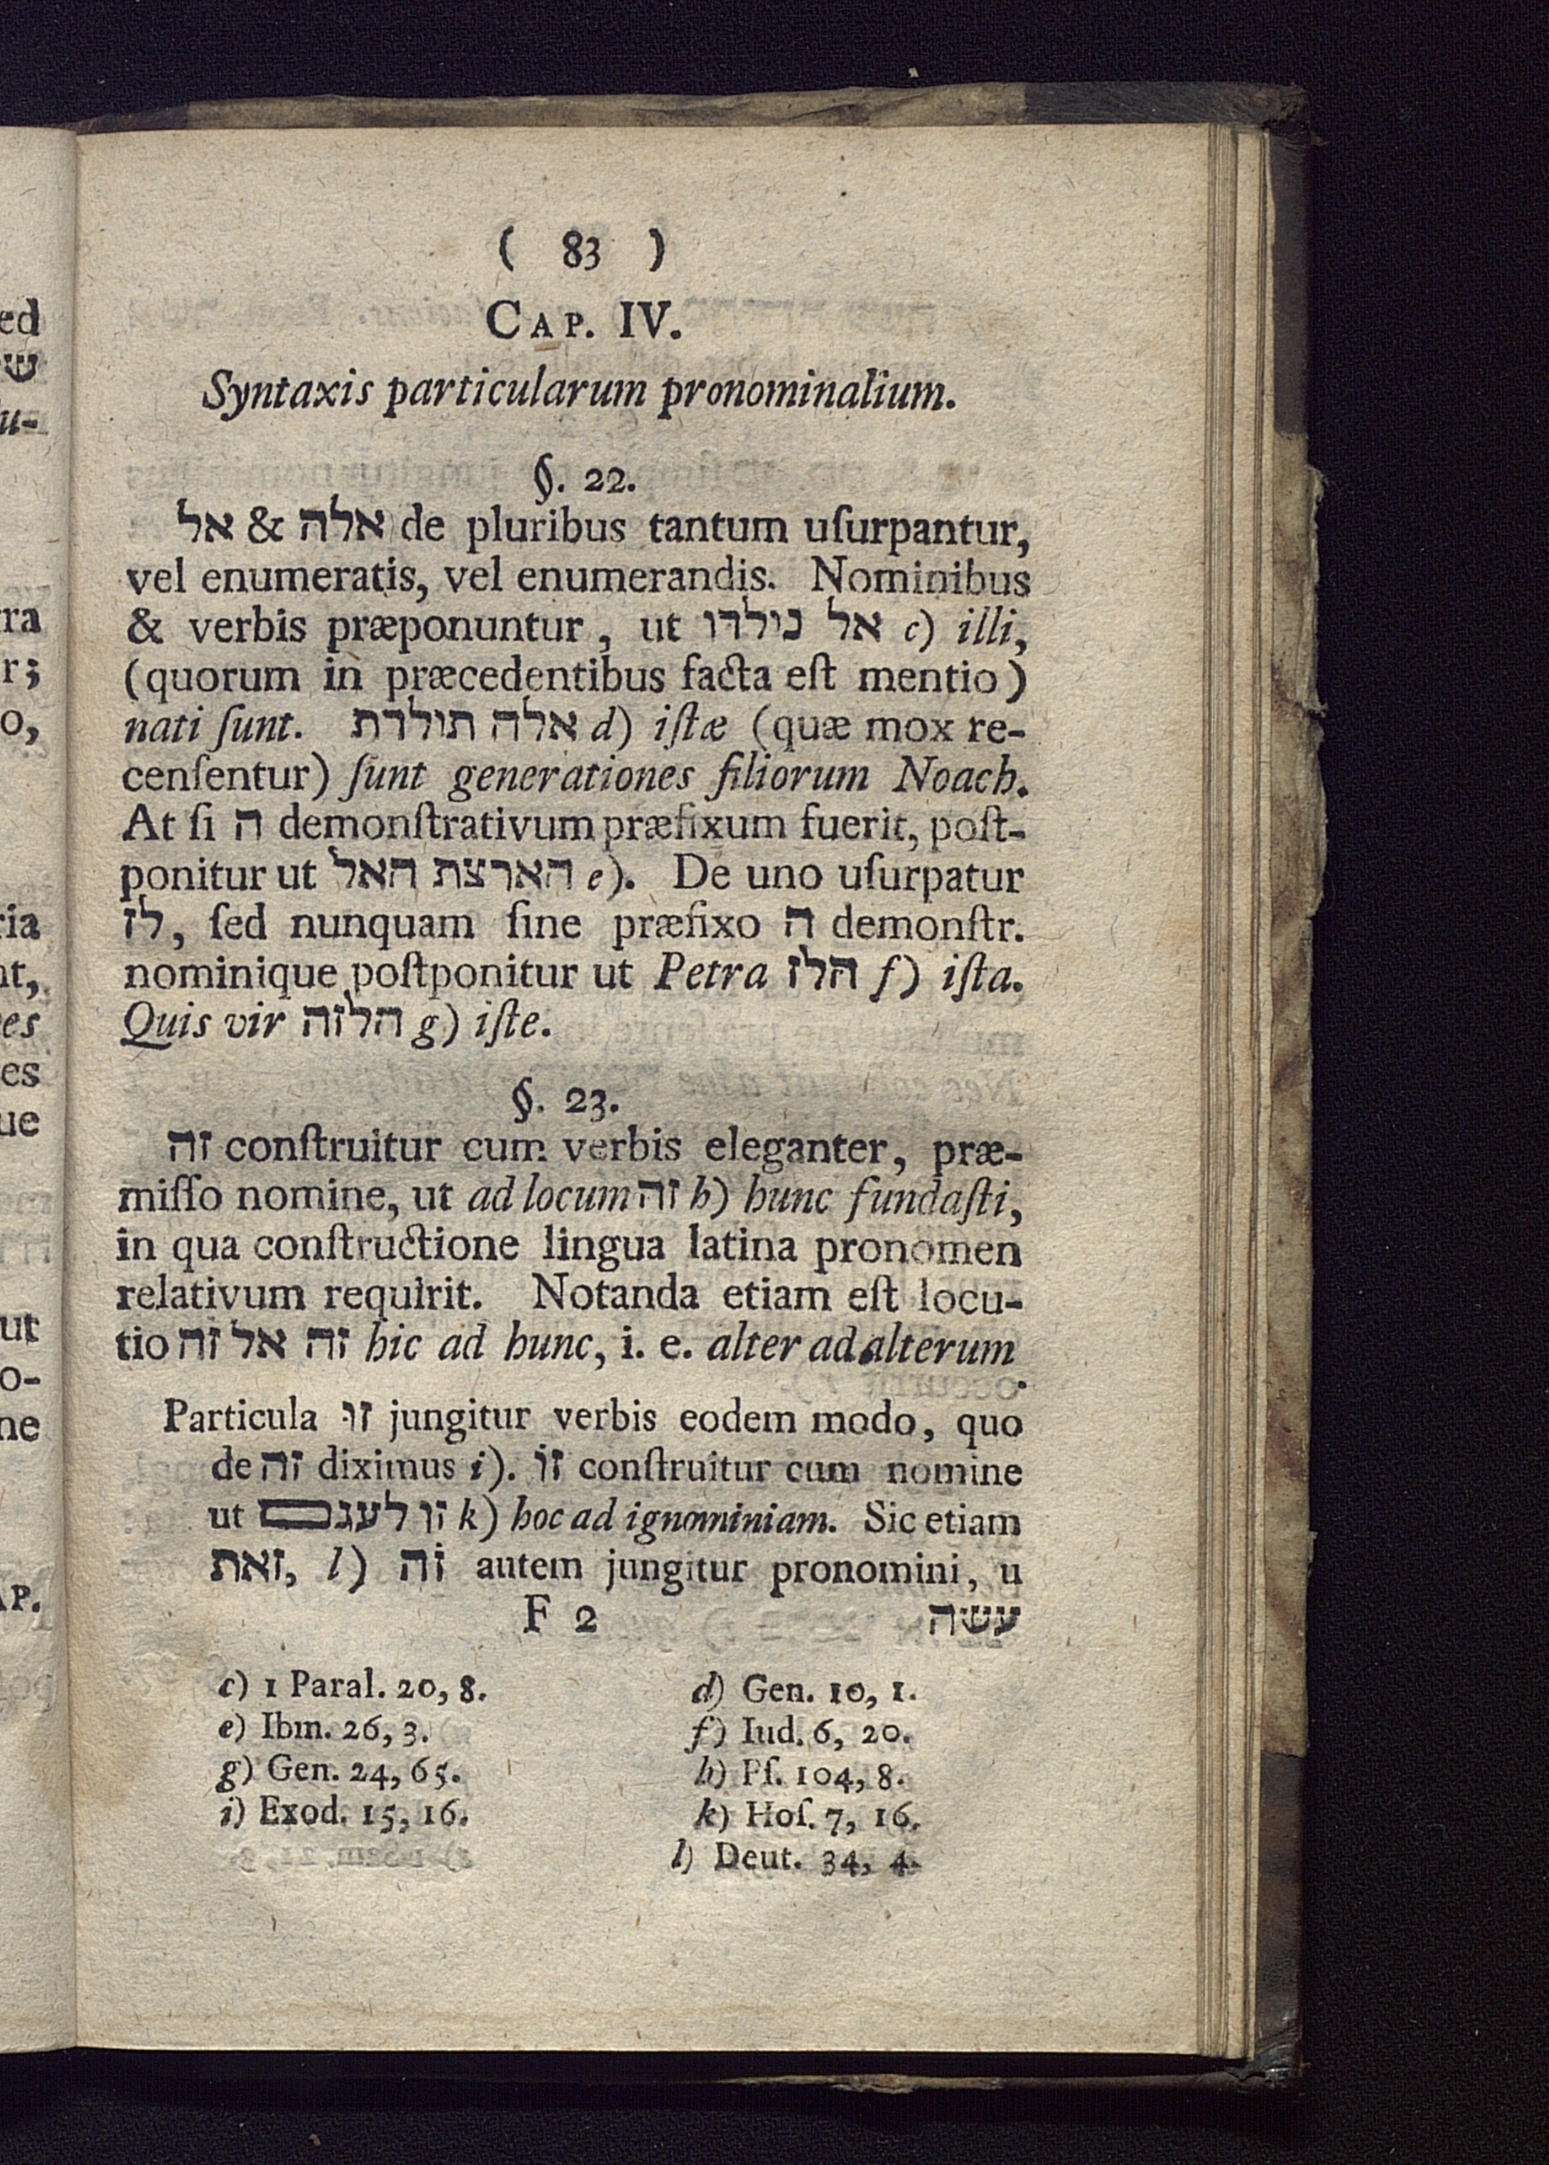 ( 83 )
CAP. IV.
Syntaxis particularum pronominalium.
§. 22.
אל & אלה de pluribus tantum uſurpantur,
vel enumeratis, vel enumerandis. Nominibus
& verbis præponuntur, ut אל נילדו c) illi,
(quorum in præcedentibus facta eſt mentio)
nati ſunt. אלה תולדת d) iſtæ (quæ mox re-
cenſentur) ſunt generationes filiorum Noach.
At ſi ה demonſtrativum præfixum fuerit, poſt-
ponitur ut הארצת האל e). De uno uſurpatur
לז, ſed nunquam ſine præfixo ה demonſtr.
nominique poſtponitur ut Petra הלז f) iſta.
Quis vir הלזה g) iſte.
§. 23.
זה conſtruitur cum verbis eleganter, præ-
miſſo nomine, ut ad locum זה h) hunc fundaſti,
in qua conſtructione lingua latina pronomen
relativum requirit. Notanda etiam eſt locu-
tio זה אל זה hic ad hunc, i. e. alter ad alterum.
Particula זו jungitur verbis eodem modo, quo
de זה diximus i). זוֹ conſtruitur cum nomine
ut זו לעגם k) hoc ad ignominiam. Sic etiam
זאת, l) זֹה autem jungitur pronomini, u
F 2 עשה
c) 1 Paral. 20, 8. d) Gen. 10, 1.
e) Ibm. 26, 3. f) Iud. 6, 20.
g) Gen. 24, 65. h) Pſ. 104, 8.
i) Exod. 15, 16. k) Hoſ. 7, 16.
l) Deut. 34, 4.